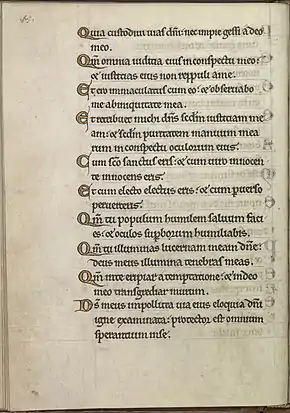 Quia custodivi vias dñi: nec impie gessi a deo
meo.
Qm̃ omnia iudicia eius in conspectu meo:
et iusticias eius non reppuli a me.
Et ero immaculatus cum eo: et observabo
me ab iniquitate mea.
Et retribuet michi dñs scdm iusticiam me
am: et scdm puritatem manuum mea
rum in conspectu oculorum eius.
Cum sco sanctus eris: et cum viro innocen
te innocens eris.
Et cum electo electus eris: et cum pverso
perverteris.
Qm̃ tu populum humilem salvum faci
es: et oculos supborum humiliabis.
Qm̃ tu illuminas lucernam meam dñe:
deus meus illumina tenebras meas.
Qm̃ in te eripiar a temptatione: et in deo
meo transgrediar murum.
Ds meus impolluta via eius eloquia dñi
igne examinata: protector est omnium
sperantium in se.